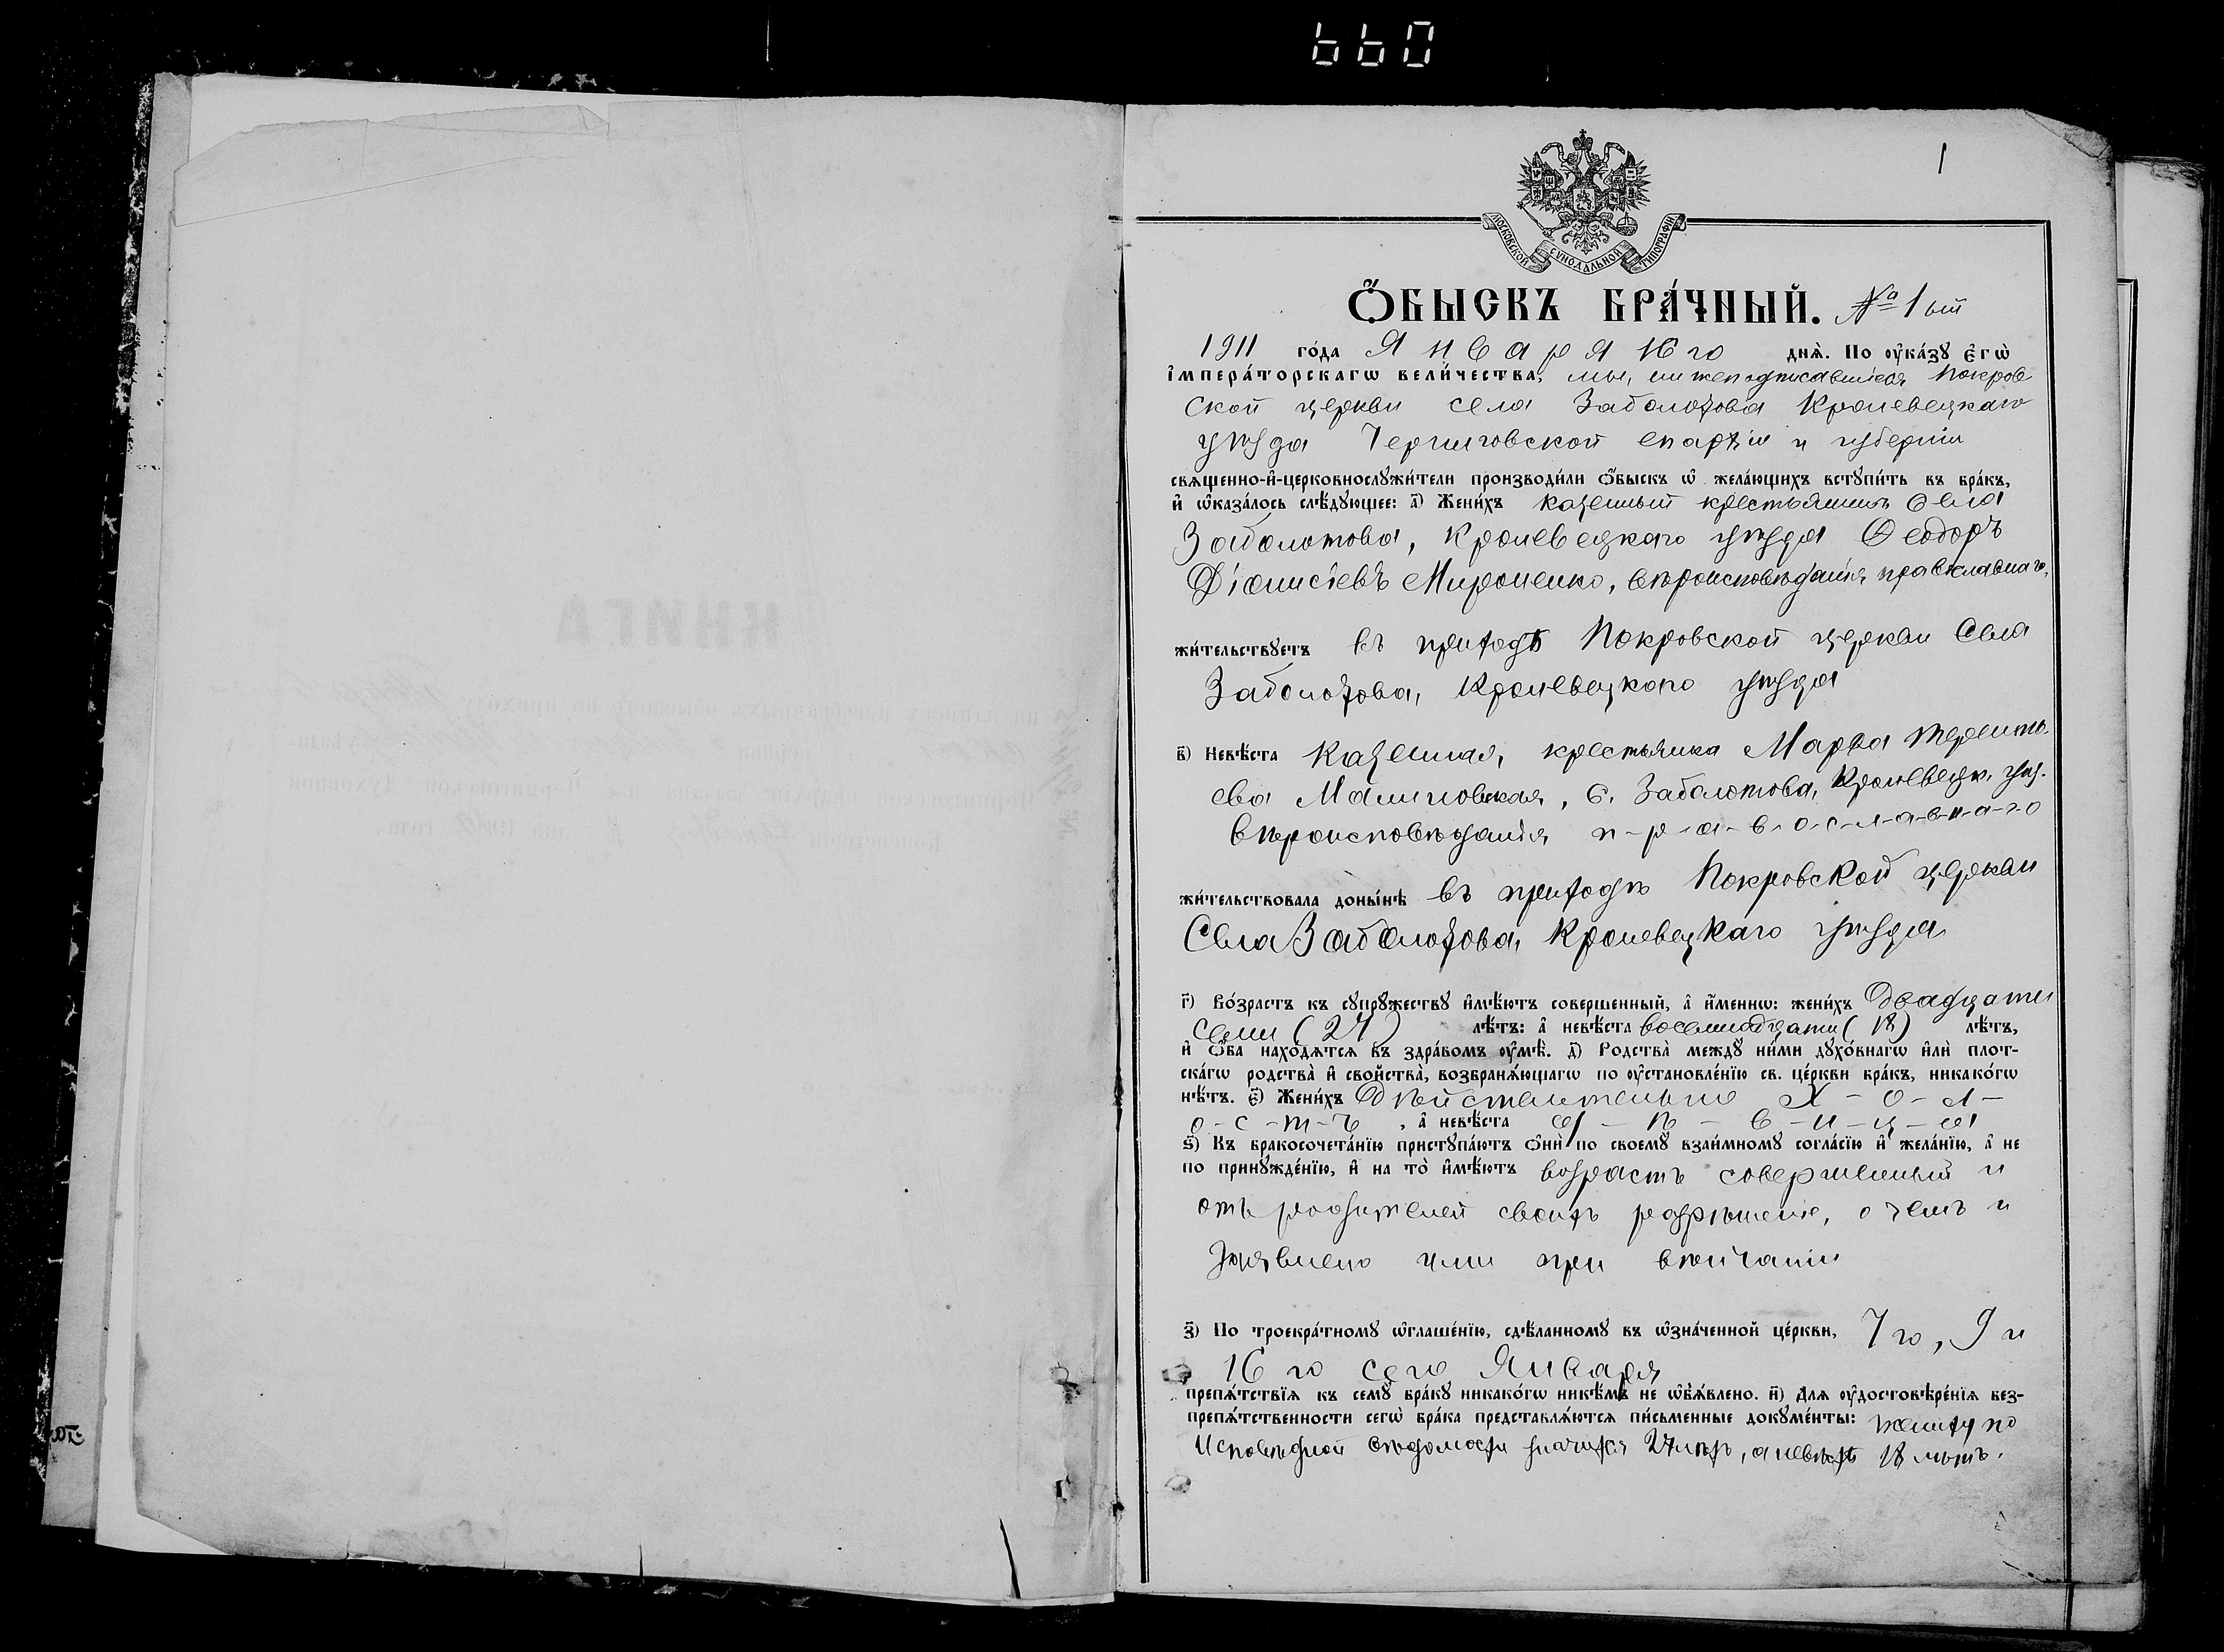 660
1
МОСКОВСКОЙ СѴНОДАЛЬНОЙ ТИПОГРАФІИ
Ѻ҆БЫСКЪ БРА́ЧНЫЙ. № 1ый
1911 го́да Января 16го днѧ̀. По ᲂу҆ка́зꙋ є҆гѡ̀
і҆мпера́торскагѡ вели́чества, мы, нижеподписавшіеся Покров
ской церкви села Заболотова Кролевецкаго
уѣзда Черниговской епархіи и губерніи
свѧщенно-и҆-церковнослꙋжи́тели производи́ли ѻ҆́быскъ ѡ҆ жела́ющихъ встꙋпи́ть въ бра́къ,
и҆ ѡ҆каза́лось слѣ́дꙋющее: а҃) Жени́хъ казенный крестьянинъ села
Заболотова, Кролевецкаго уѣзда Ѳеодоръ
Діонисіевъ Мироненко, вѣроисповѣданія православнаго,
жи́тельствꙋетъ въ приходѣ Покровской церкви села
Заболотова, Кролевецкаго уѣзда
в҃) Невѣ́ста казенная, крестьянка Марѳа Теренть-
ева Малиновская, с. Заболотова, Кролевецк. уѣз.
вѣроисповѣданія п-р-а-в-о-с-л-а-в-н-а-г-о
жи́тельствовала доны́нѣ въ приходѣ Покровской церкви
Села Заболотова, Кролевецкаго уѣзда
г҃) Во́зрастъ къ сꙋпрꙋ́жествꙋ и҆мѣ́ютъ совершенный, а҆ и҆́меннѡ: жени́хъ двадцати
семи (27) лѣ́тъ: а҆ невѣ́ста восемнадцати (18) лѣ́тъ,
и҆ ѻ҆́ба нахо́дѧтсѧ въ здра́вомъ ᲂу҆мѣ̀. д҃) Родства̀ междꙋ̀ ни́ми дꙋхо́внагѡ и҆лѝ плот-
ска́гѡ родства̀ и҆ свойства̀, возбранѧ́ющагѡ по ᲂу҆становле́нїю св. це́ркви бра́къ, никако́гѡ
нѣ́тъ. є҃) Жени́хъ дѣйствительно Х-о-л-
о-с-т-ъ, а҆ невѣ́ста д-ѣ-в-и-ц-а
ѕ҃) Къ бракосочета́нїю пристꙋпа́ютъ ѻ҆нѝ по своемꙋ̀ взаи́мномꙋ согла́сїю и҆ жела́нїю, а҆ не
по принꙋжде́нїю, и҆ на то̀ и҆мѣ́ютъ возрастъ совершенный и
отъ родителей своихъ разрѣшеніе, о чемъ и
заявлено ими при вѣнчаніи
з҃) По троекра́тномꙋ ѡ҆глаше́нїю, сдѣ́ланномꙋ въ ѡ҆зна́ченной це́ркви, 7го, 9 и
16го сего Января
препѧ́тствїѧ къ семꙋ̀ бра́кꙋ никако́гѡ никѣ́мъ не ѡ҆б̾ѧ́влено. и҃) Длѧ ᲂу҆достовѣре́нїѧ без-
препѧ́тственности сегѡ̀ бра́ка представлѧ́ютсѧ пи́сьменные докꙋме́нты: жениху по
Исповѣдной вѣдомости значится 27 лѣтъ, а невѣстѣ 18 лѣтъ.